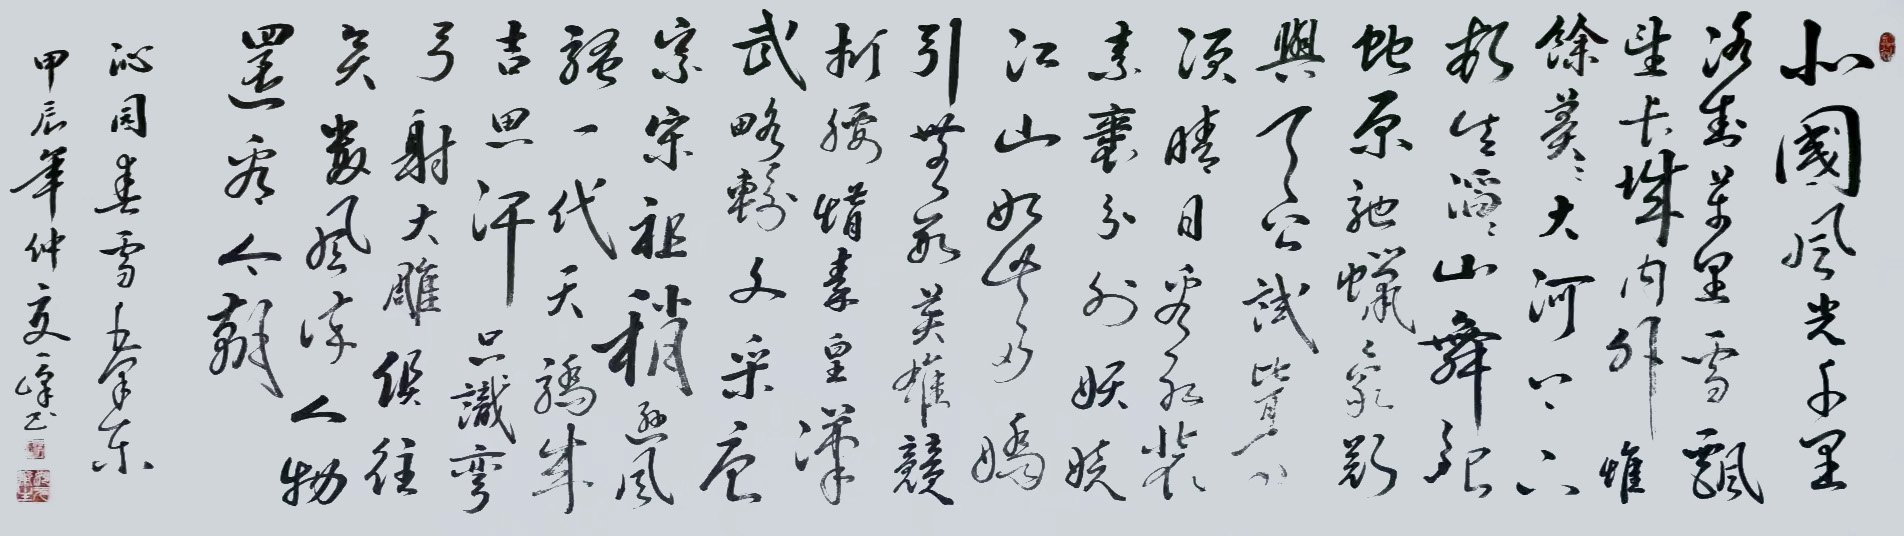 北國风光千里
冰封萬里雪飄
望长城内外惟
餘莽莽大河上下
頓失滔滔山舞銀
蛇原馳蠟象欲
與天公試比高
須晴日看红裝
素裹分外妖娆
江山如此多嬌
引無數英雄競
折腰惜秦皇漢
武略輸文采唐
宗宋祖稍遜风
騷一代天驕成
吉思汗只識彎
弓射大雕俱往
矣數风流人物
還看今朝
沁园春雪毛泽东
甲辰年仲夏峰书